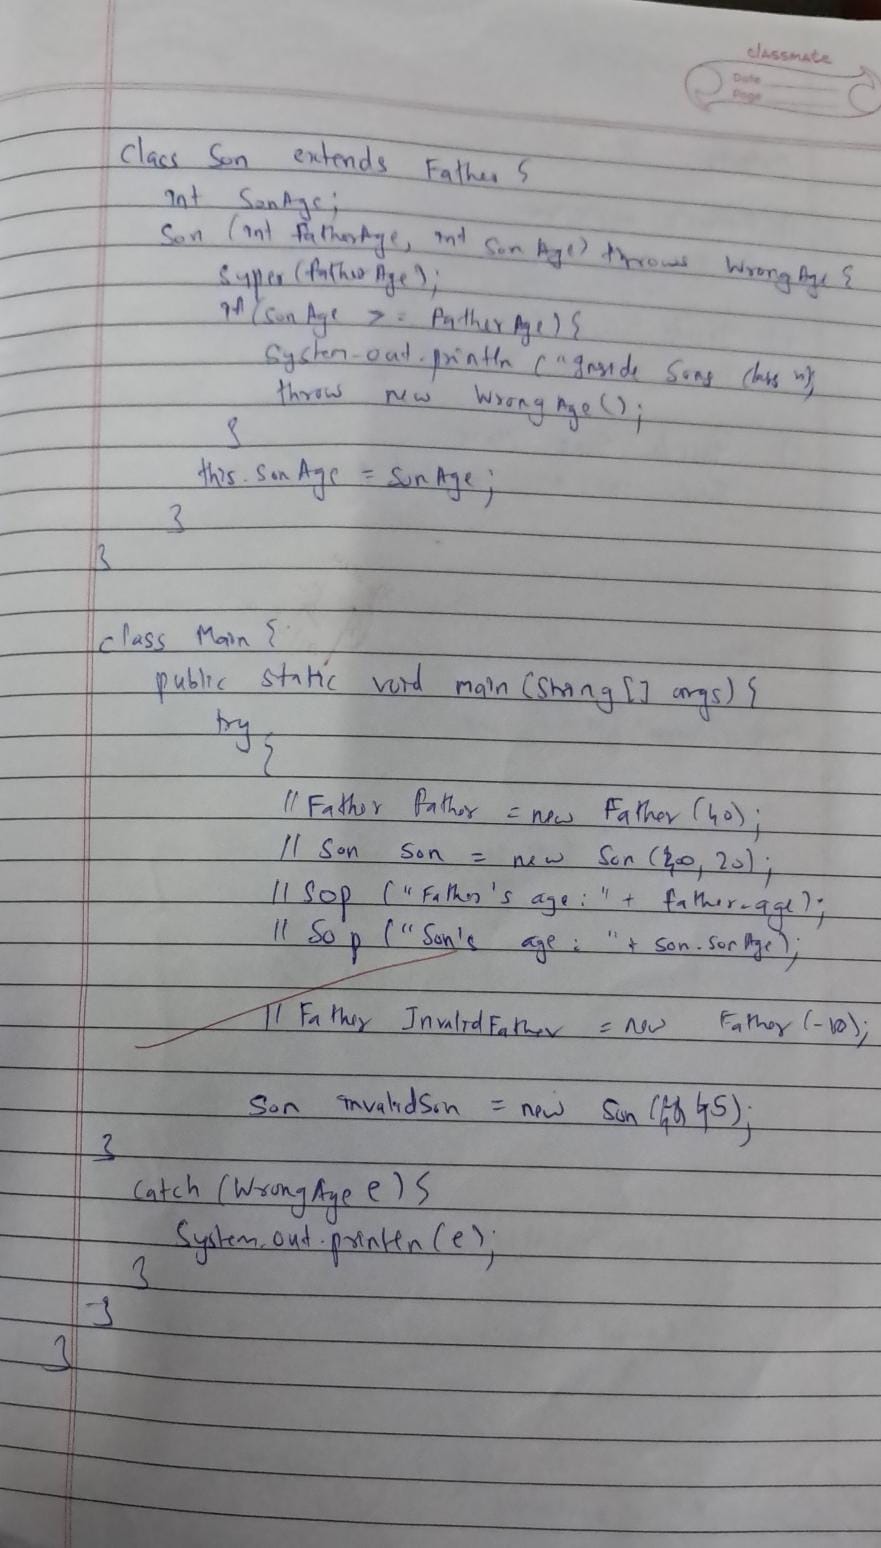 classmate
Date
Page
class Son extends Father {
int SonAge;
Son (int fatherAge, int SonAge) throws WrongAge {
super(fatherAge);
if (SonAge >= FatherAge) {
System.out.println ("Inside Sons class");
throw new WrongAge();
}
this.SonAge = SonAge;
}
}
class Main {
public static void main (String [] args) {
try
{
// Father father = new Father (40);
// Son son = new Son (, 20);
// Sop ("Father's age:" + father.age);
// Sop ("Son's age: "+ son.sonAge);
// Father InvalidFather = new Father (-10);
Son invalidSon = new Son (45);
}
catch (WrongAge e) {
System.out.println (e);
}
}
}